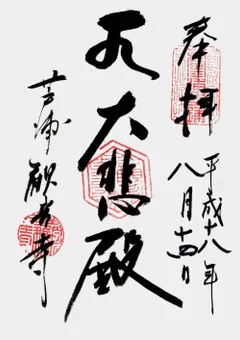 奉拝
平成十八年
八月十四日
大悲殿
観音寺